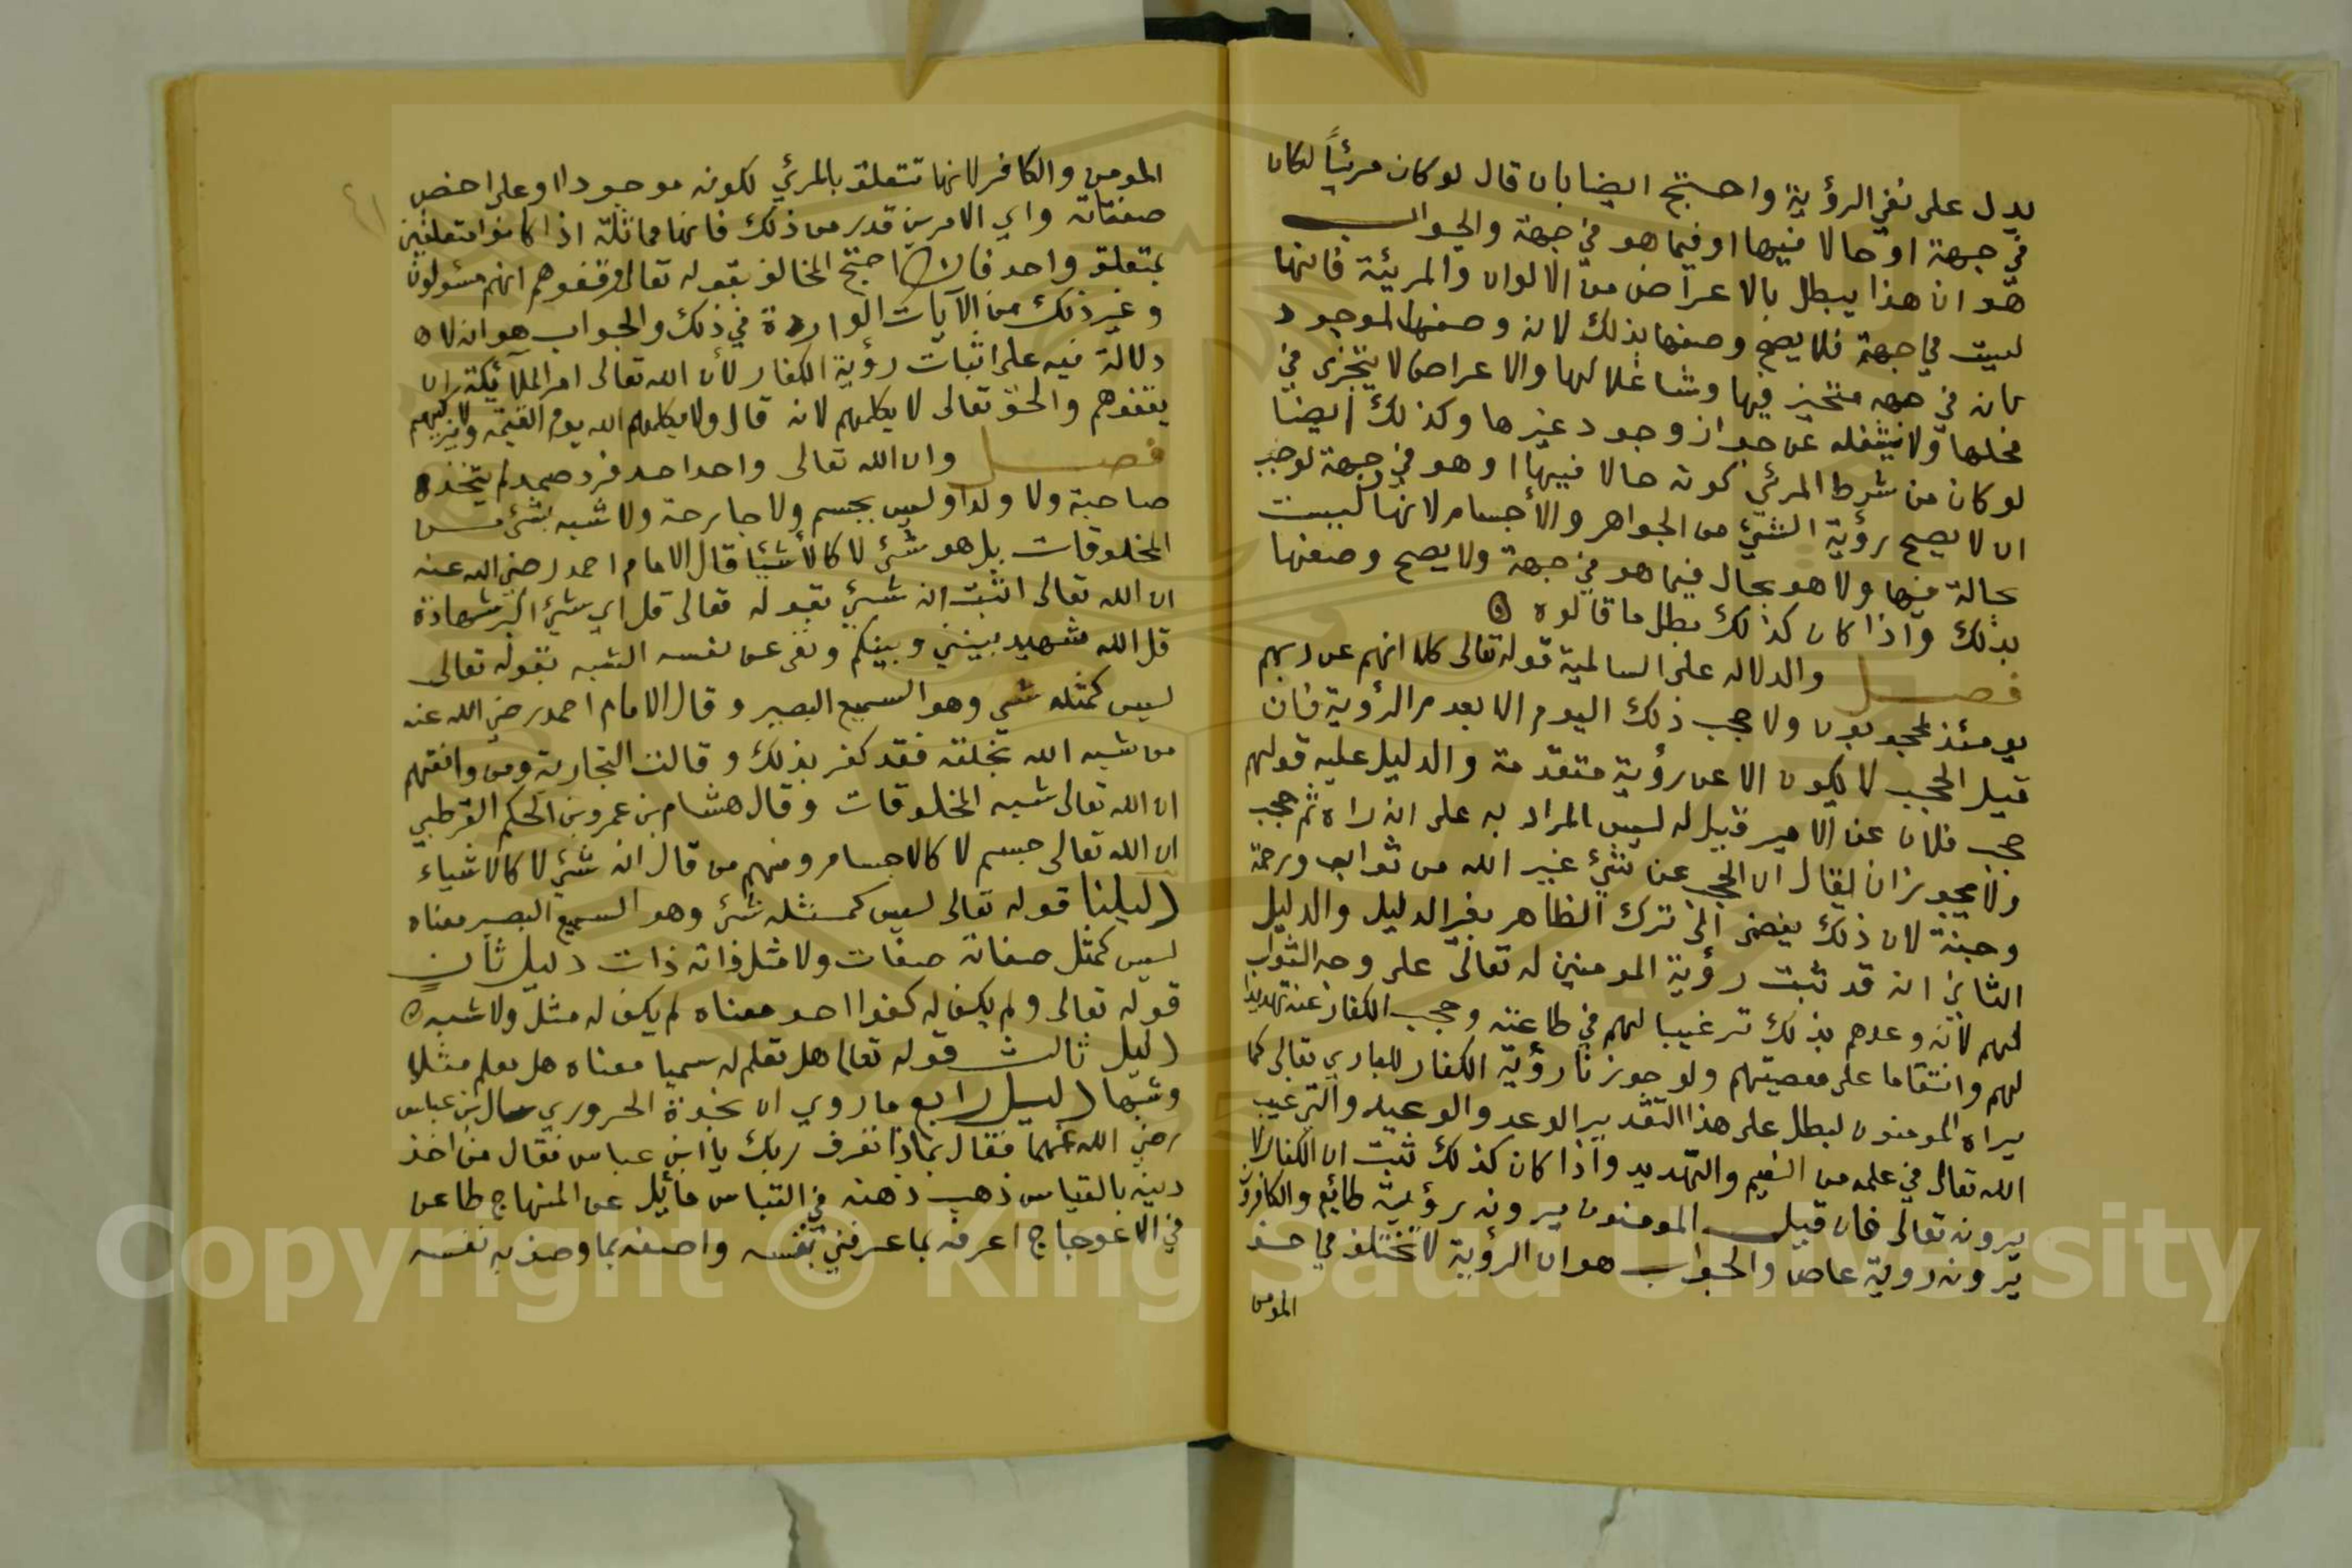 يدل على نفي الرؤية واحتج ايضا بان قال لو كان مرئياً لكان
في جهة او حالا فيها او فيما هو في جهة والجواب
هو ان هذا يبطل بالاعراض من الالوان والمرئية فانها
ليست في جهة فلا يصح وصفها بذلك لانه وصفها لموجود
بانه في جهه متحيز فيها وشاغلا لها والاعراض لا يتجزى في
محلها ولا تشغله عن جواز وجود غيرها وكذلك أيضا
لو كان من شرط المرئي كونه حالا فيها او هو في جهة لوجب
ان لا يصح رؤية الشئ من الجواهر والأجسام لانها ليست
بحالة فيها ولا هو بحال فيما هو في جهة ولا يصح وصفها
بذلك واذا كان كذلك بطل ما قالوه
فصل والدلاله على السالمية قوله تعالى كلا انهم عن ربهم
يومئذ لمحجوبون ولا حجب ذلك اليوم الا بعدم الرؤية فان
قيل الحجب لا يكون الا عن رؤية متقدمة والدليل عليه قولهم
حجب فلان عن الامير قيل له ليس المراد به على انه راه ثم حجب
ولا يجوز ان يقال ان الحجب عن شئ غير الله من ثوابه ورحمة
وجنة لان ذلك يفضي الى ترك الظاهر بغير الدليل والدليل
الثاني انه قد ثبت رؤية المومنين له تعالى على وجه الثواب
لهم لانه وعدهم بذلك ترغيبا لهم في طاعته وحجب الكفار عنه تهديدا
لهم وانتقاما على معصيتهم ولو جوزنا رؤية الكفار للباري تعالى كما
يراه المومنون لبطل على هذا التقدير الوعد والوعيد والترغيب
الله تعالى في علمه من النعيم والتهديد واذا كان كذلك ثبت ان الكفار لا
يرونه تعالى فان قيل المومنون يرونه رؤية طائع والكافرون
يرونه روية عاص والجواب هو ان الرؤية لا تختلف في حق
المومن
المومن والكافر لانها تتعلق بالمرئي لكونه موجودا او على اخص
صفتاته واي الامرين قدر من ذلك فانها مماثلة اذا كانوا متعلقين
بمتعلق واحد فان احتج المخالف بقوله تعالى وقفوهم انهم مسئولون
وغير ذلك من الآيات الواردة في ذلك والجواب هو انه لا
دلالة فيه على اثبات رؤية الكفار لأن الله تعالى امر الملآئكة بان
يقفوهم والحق تعالى لا يكلمهم لانه قال ولا يكلمهم الله يوم القيمه ولا يزكيهم
فصل وان الله تعالى واحد احد فرد صمد لم يتخذ
صاحبة ولا ولدا وليس بجسم ولا جارحة ولا شبه بشئ من
المخلوقات بل هو شئ لا كالأشيئا قال الامام احمد رضي الله عنه
ان الله تعالى اثبت انه شئ بقوله تعالى قل اي شئ اكبر شهادة
قل الله شهيد بيني وبينكم ونفى عن نفسه الشبه بقوله تعالى
ليس كمثله شي وهو السميع البصير وقال الامام احمد رضي الله عنه
من شبه الله بخلقه فقد كفر بذلك وقالت النجارية ومن وافقهم
ان الله تعالى شبه المخلوقات وقال هشام بن عمرو بن الحكم القرطبي
ان الله تعالى جسم لا كالاجسام ومنهم من قال انه شئ لا كالاشياء
دليلنا قوله تعالى ليس كمثله شئ وهو السميع البصير معناه
ليس كمثل صفاته صفات ولا مثل ذاته ذات دليل ثان
قوله تعالى ولم يكن له كفوا احد معناه لم يكن له مثل ولا شبه
دليل ثالث قوله تعالى هل تعلم له سميا معناه هل تعلم مثلا
وشبها دليل رابع ما روي ان نجدة الحروري سال ابن عباس
رضي الله عنهما فقال بماذا تعرف ربك يا ابن عباس فقال من اخذ
دينه بالقياس ذهب ذهنه في القياس مائل عن المنهاج طاعن
في الاعوجاج اعرفه بما عرفني نفسه واصفه بما وصف به نفسه
٤١
Copyright © King Saud University